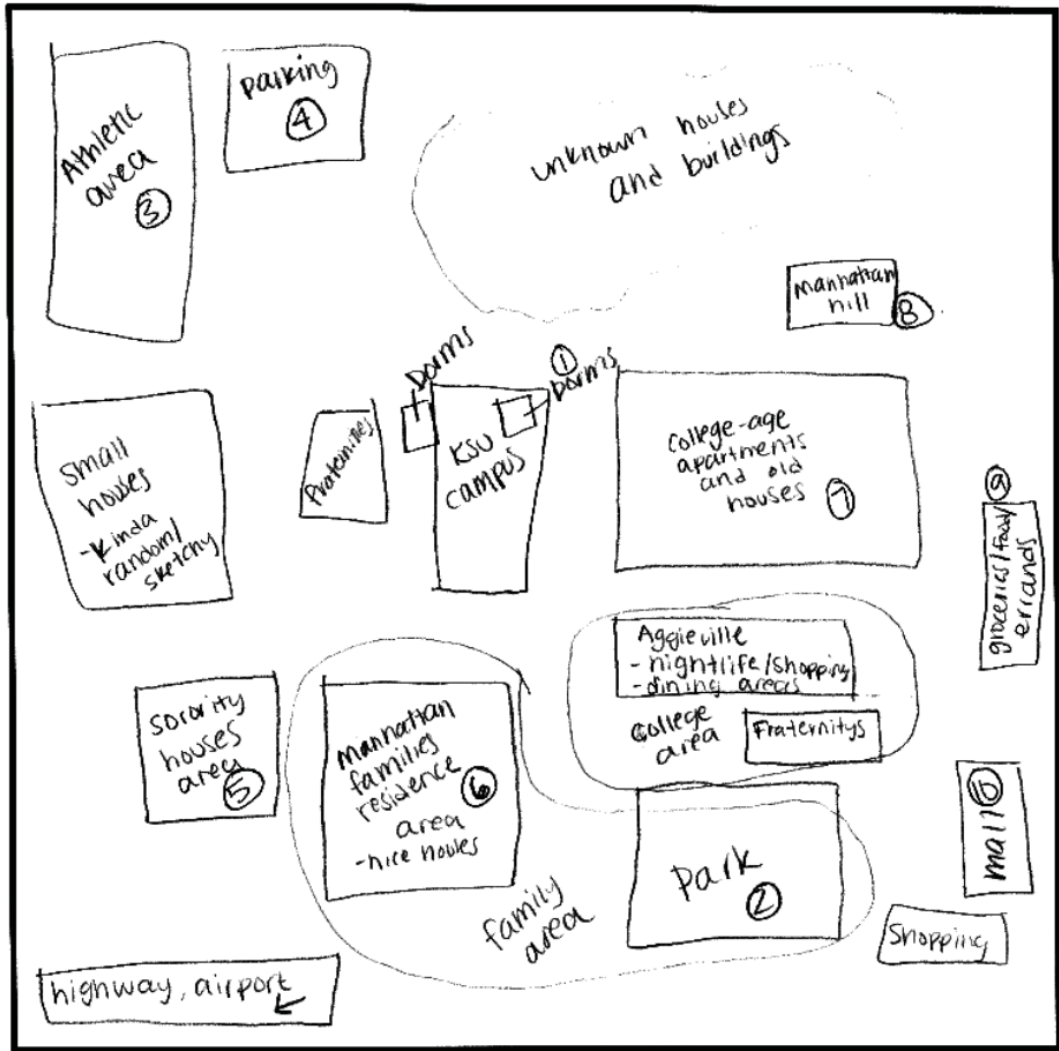 Athletic
area
3
parking
4
unknown houses
and buildings
manhattan
hill
8
small
houses
-kinda
random/
sketchy
Fraternities
Dorms
1
Dorms
KSU
campus
college-age
apartments
and old
houses
7
9
groceries/food/
errands
Aggieville
- nightlife/shopping
- dining areas
college
area
Fraternitys
sorority
houses
area
5
manhattan
families
residence
area
6
-nice houses
family
area
park
2
mall
Shopping
highway, airport